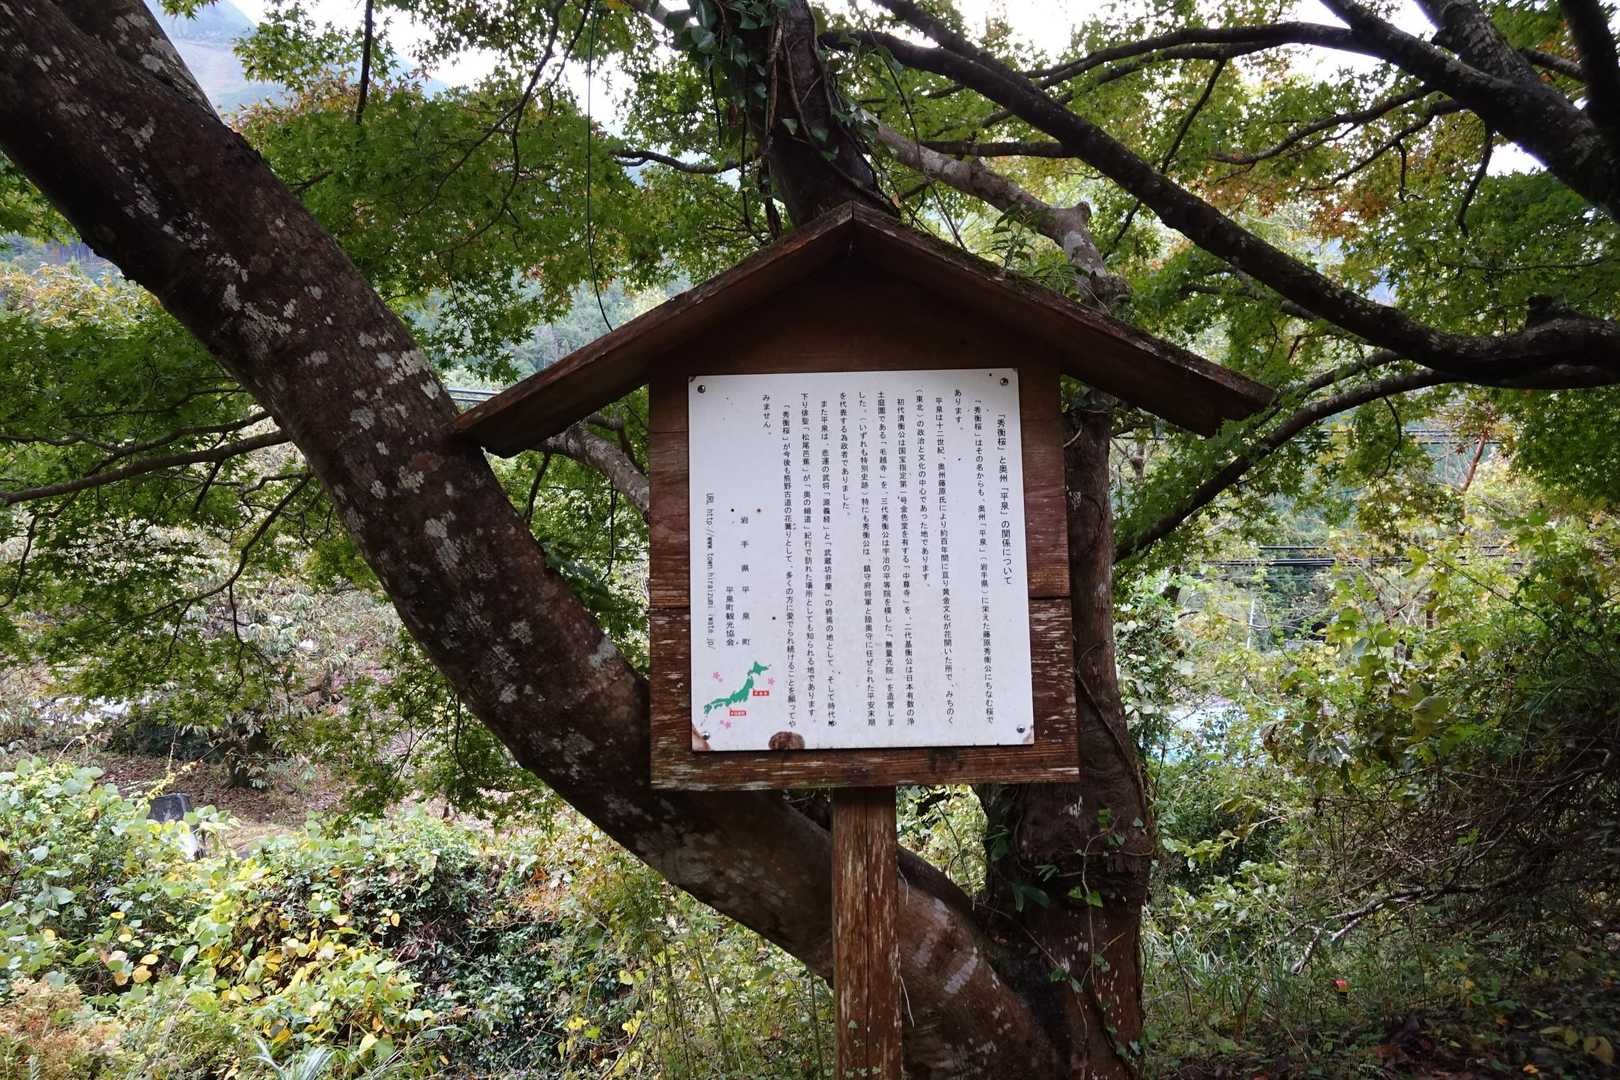 「秀衡桜」と奥州「平泉」の関係について
「秀衡桜」はその名からも、奥州「平泉」(岩手県)に栄えた藤原秀衡公にちなむ桜で
あります。
平泉は十二世紀、奥州藤原氏により約百年間に亘り黄金文化が花開いた所で、みちのく
(東北)の政治と文化の中心であった地であります。
初代清衡公は国宝指定第一号金色堂を有する「中尊寺」を、二代基衡公は日本有数の浄
土庭園である「毛越寺」を、三代秀衡公は宇治の平等院を模した「無量光院」を造営しま
した。(いずれも特別史跡)特にも秀衡公は、鎮守府将軍と陸奥守に任ぜられた平安末期
を代表する為政者でありました。
また平泉は、悲運の武将「源義経」と「武蔵坊弁慶」の終焉の地として、そして時代
下り俳聖「松尾芭蕉」が「奥の細道」紀行で訪れた場所としても知られる地であります。
「秀衡桜」が今後も熊野古道の花篝りとして、多くの方に愛でられ続けることを願ってや
みません。
岩手県平泉町
平泉町観光協会
URL http://www.town.hiraizumi.iwate.jp/